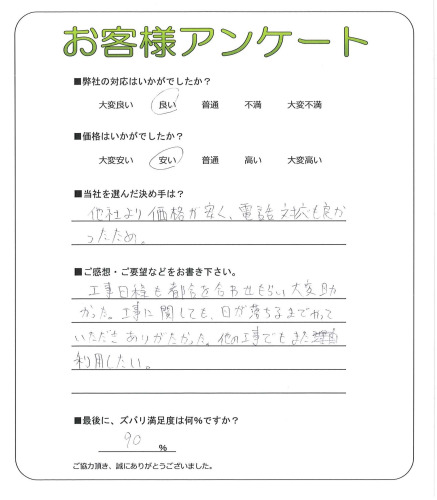 お客様アンケート
■弊社の対応はいかがでしたか？
大変良い 良い 普通 不満 大変不満
■価格はいかがでしたか？
大変安い 安い 普通 高い 大変高い
■当社を選んだ決め手は？
他社より価格が安く、電話対応も良か
ったため。
■ご感想・ご要望などをお書き下さい。
工事日程も都合を合わせもらい大変助
かった。工事に関しても、日が落ちるまでやって
いただきありがたかった。他の工事でもまた
利用したい。
■最後に、ズバリ満足度は何%ですか？
90 %
ご協力頂き、誠にありがとうございました。